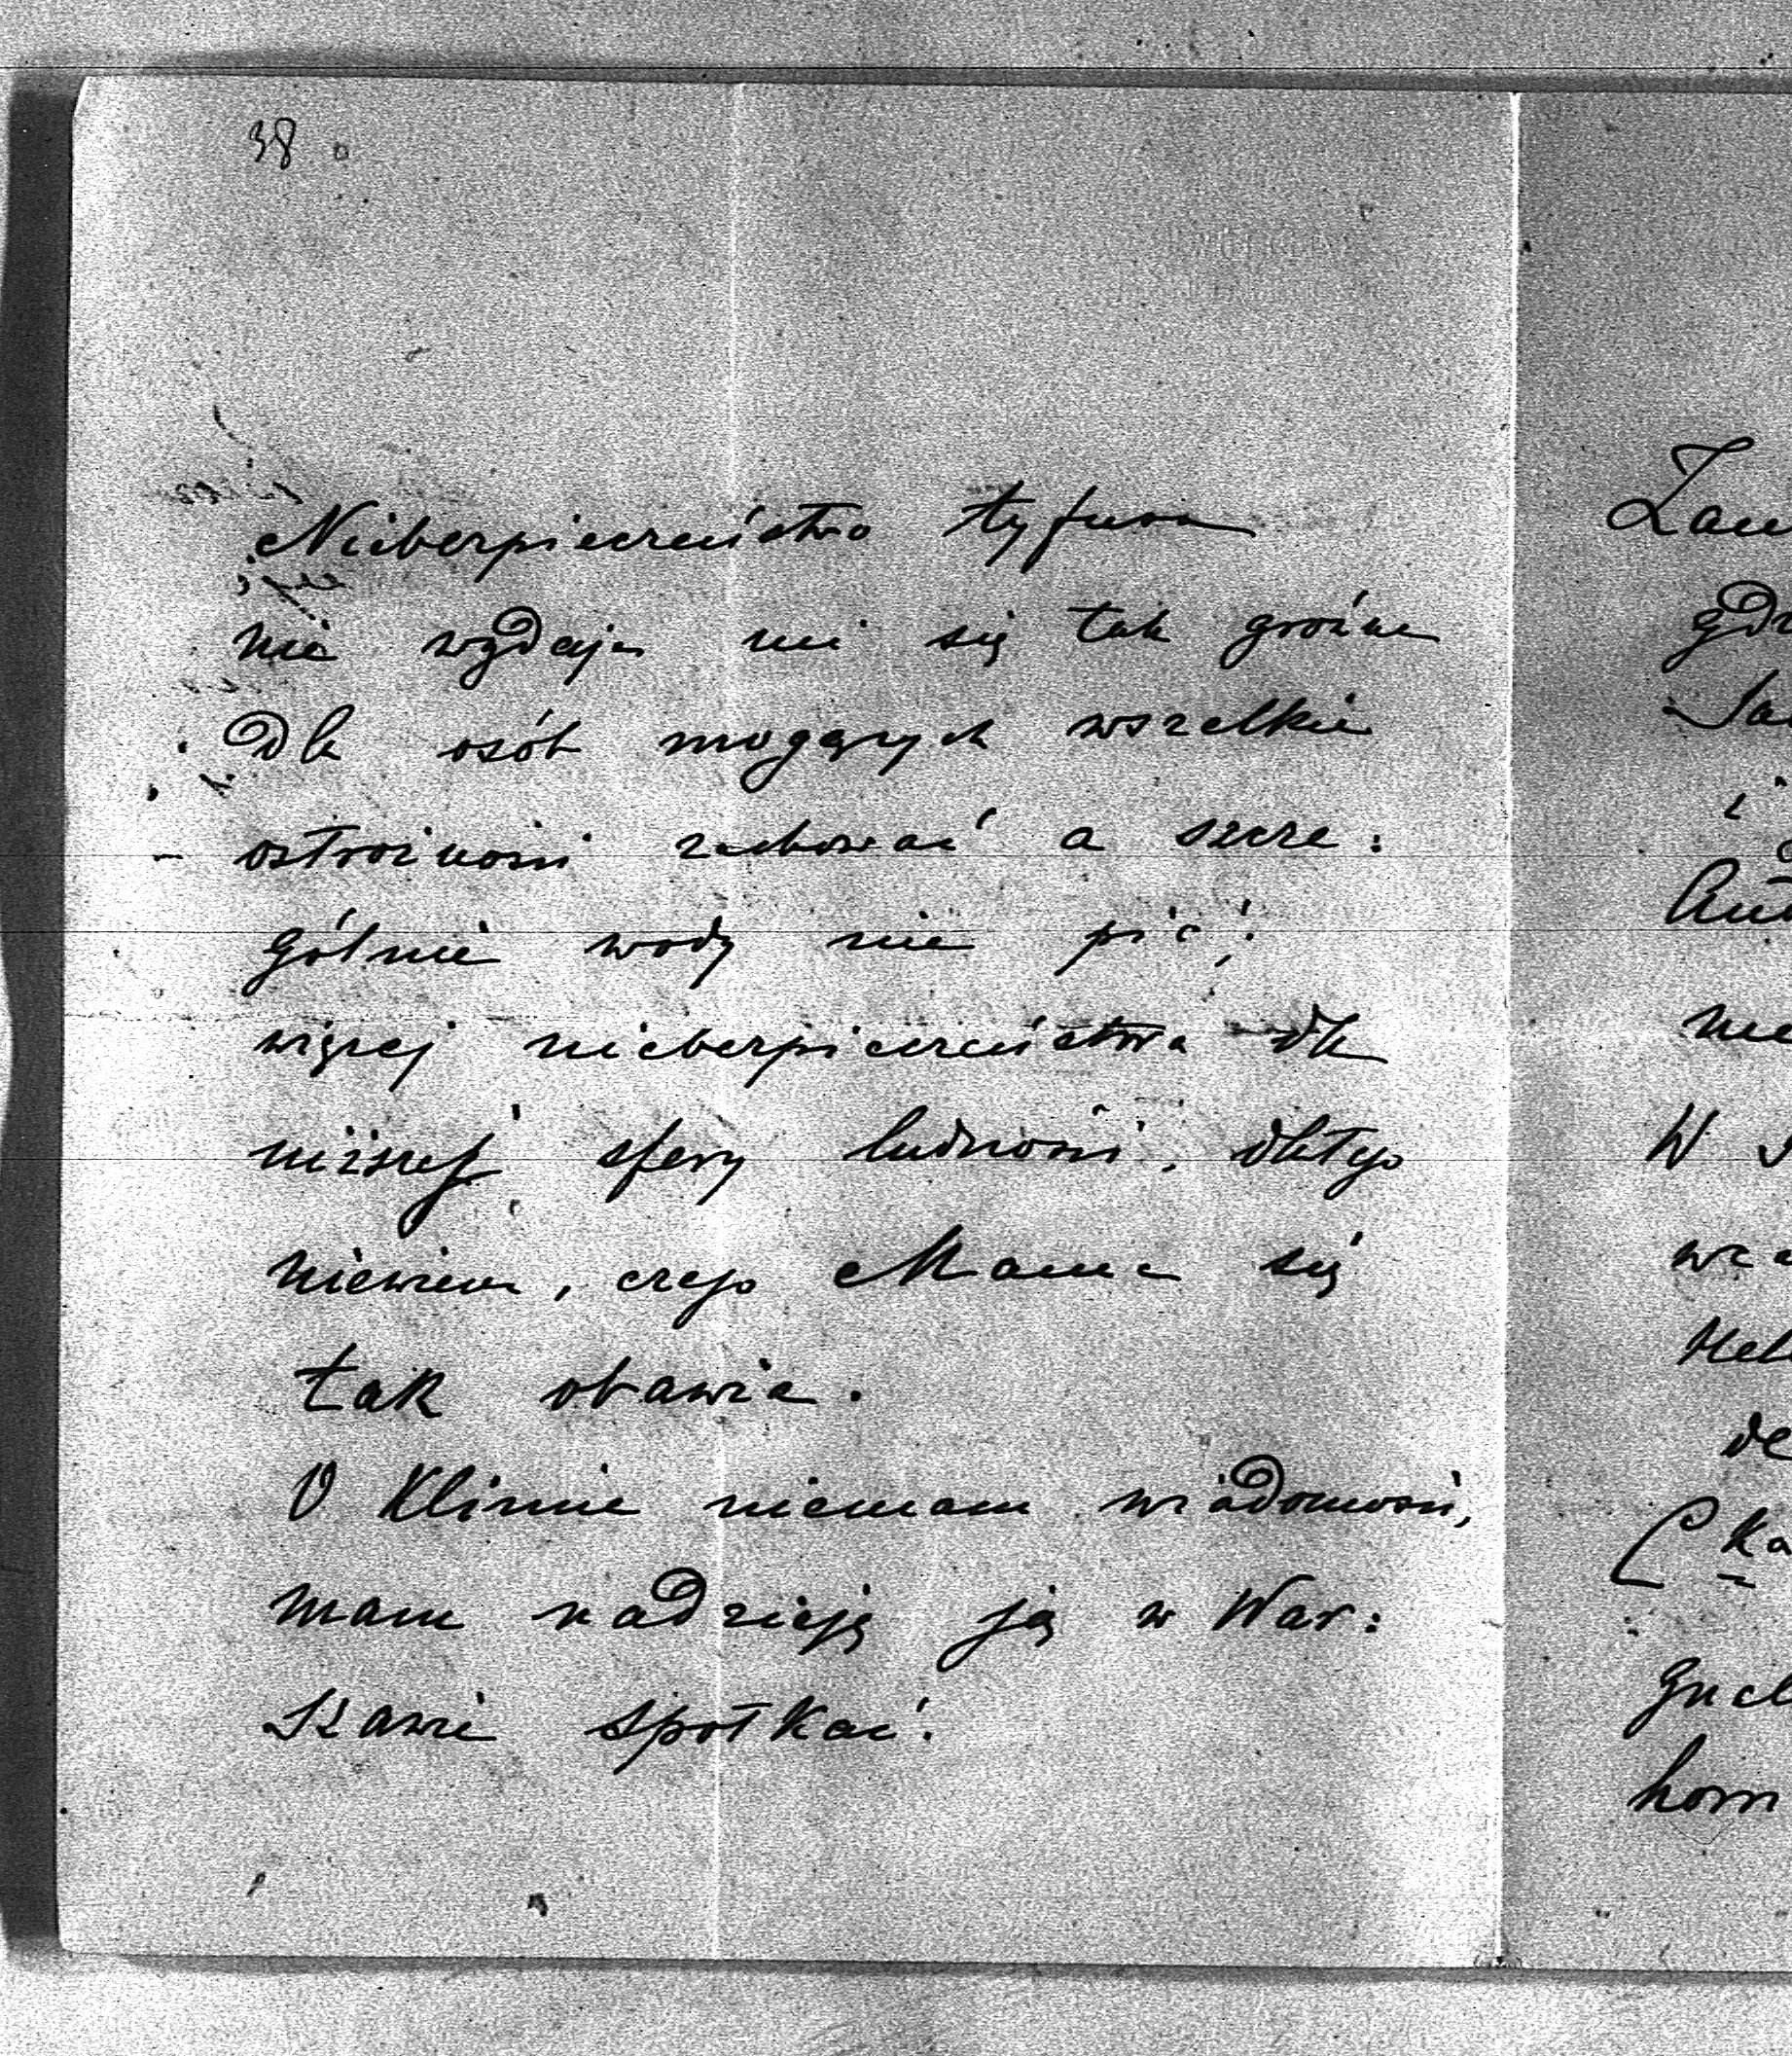 38
Niebezpieczeństwo tyfusu
nie wydaje mi się tak groźne
dla osób mogących wszelkie
ostrożności zachować a szcze:
gólnie wody nie pić;
więcej niebezpieczeństwa dla
niższej sfery ludności, dlatego
niewiem, czego Mama się
tak obawia.
O Klimie niemam wiadomości,
mam nadzieję ją w War:
szawie spotkać.
gdz
i
nie
W
Ka